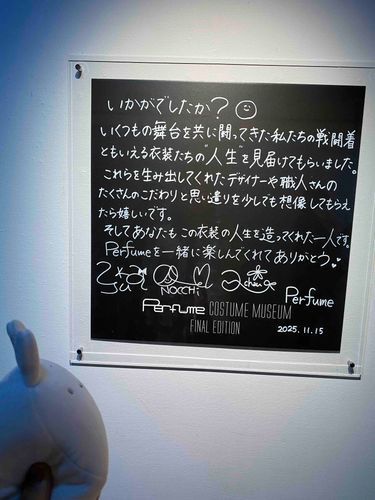 いかがでしたか？
いくつもの舞台を共に闘ってきた私たちの戦闘着
ともいえる衣装たちの"人生"を見届けてもらいました。
これらを生み出してくれたデザイナーや職人さんの
たくさんのこだわりと思い遣りを少しでも想像してもらえ
たら嬉しいです。
そしてあなたもこの衣装の人生を造ってくれた一人です。
Perfumeを一緒に楽しんでくれてありがとう
NOCCHi
Perfume
Perfume COSTUME MUSEUM
FINAL EDITION
2025.11.15